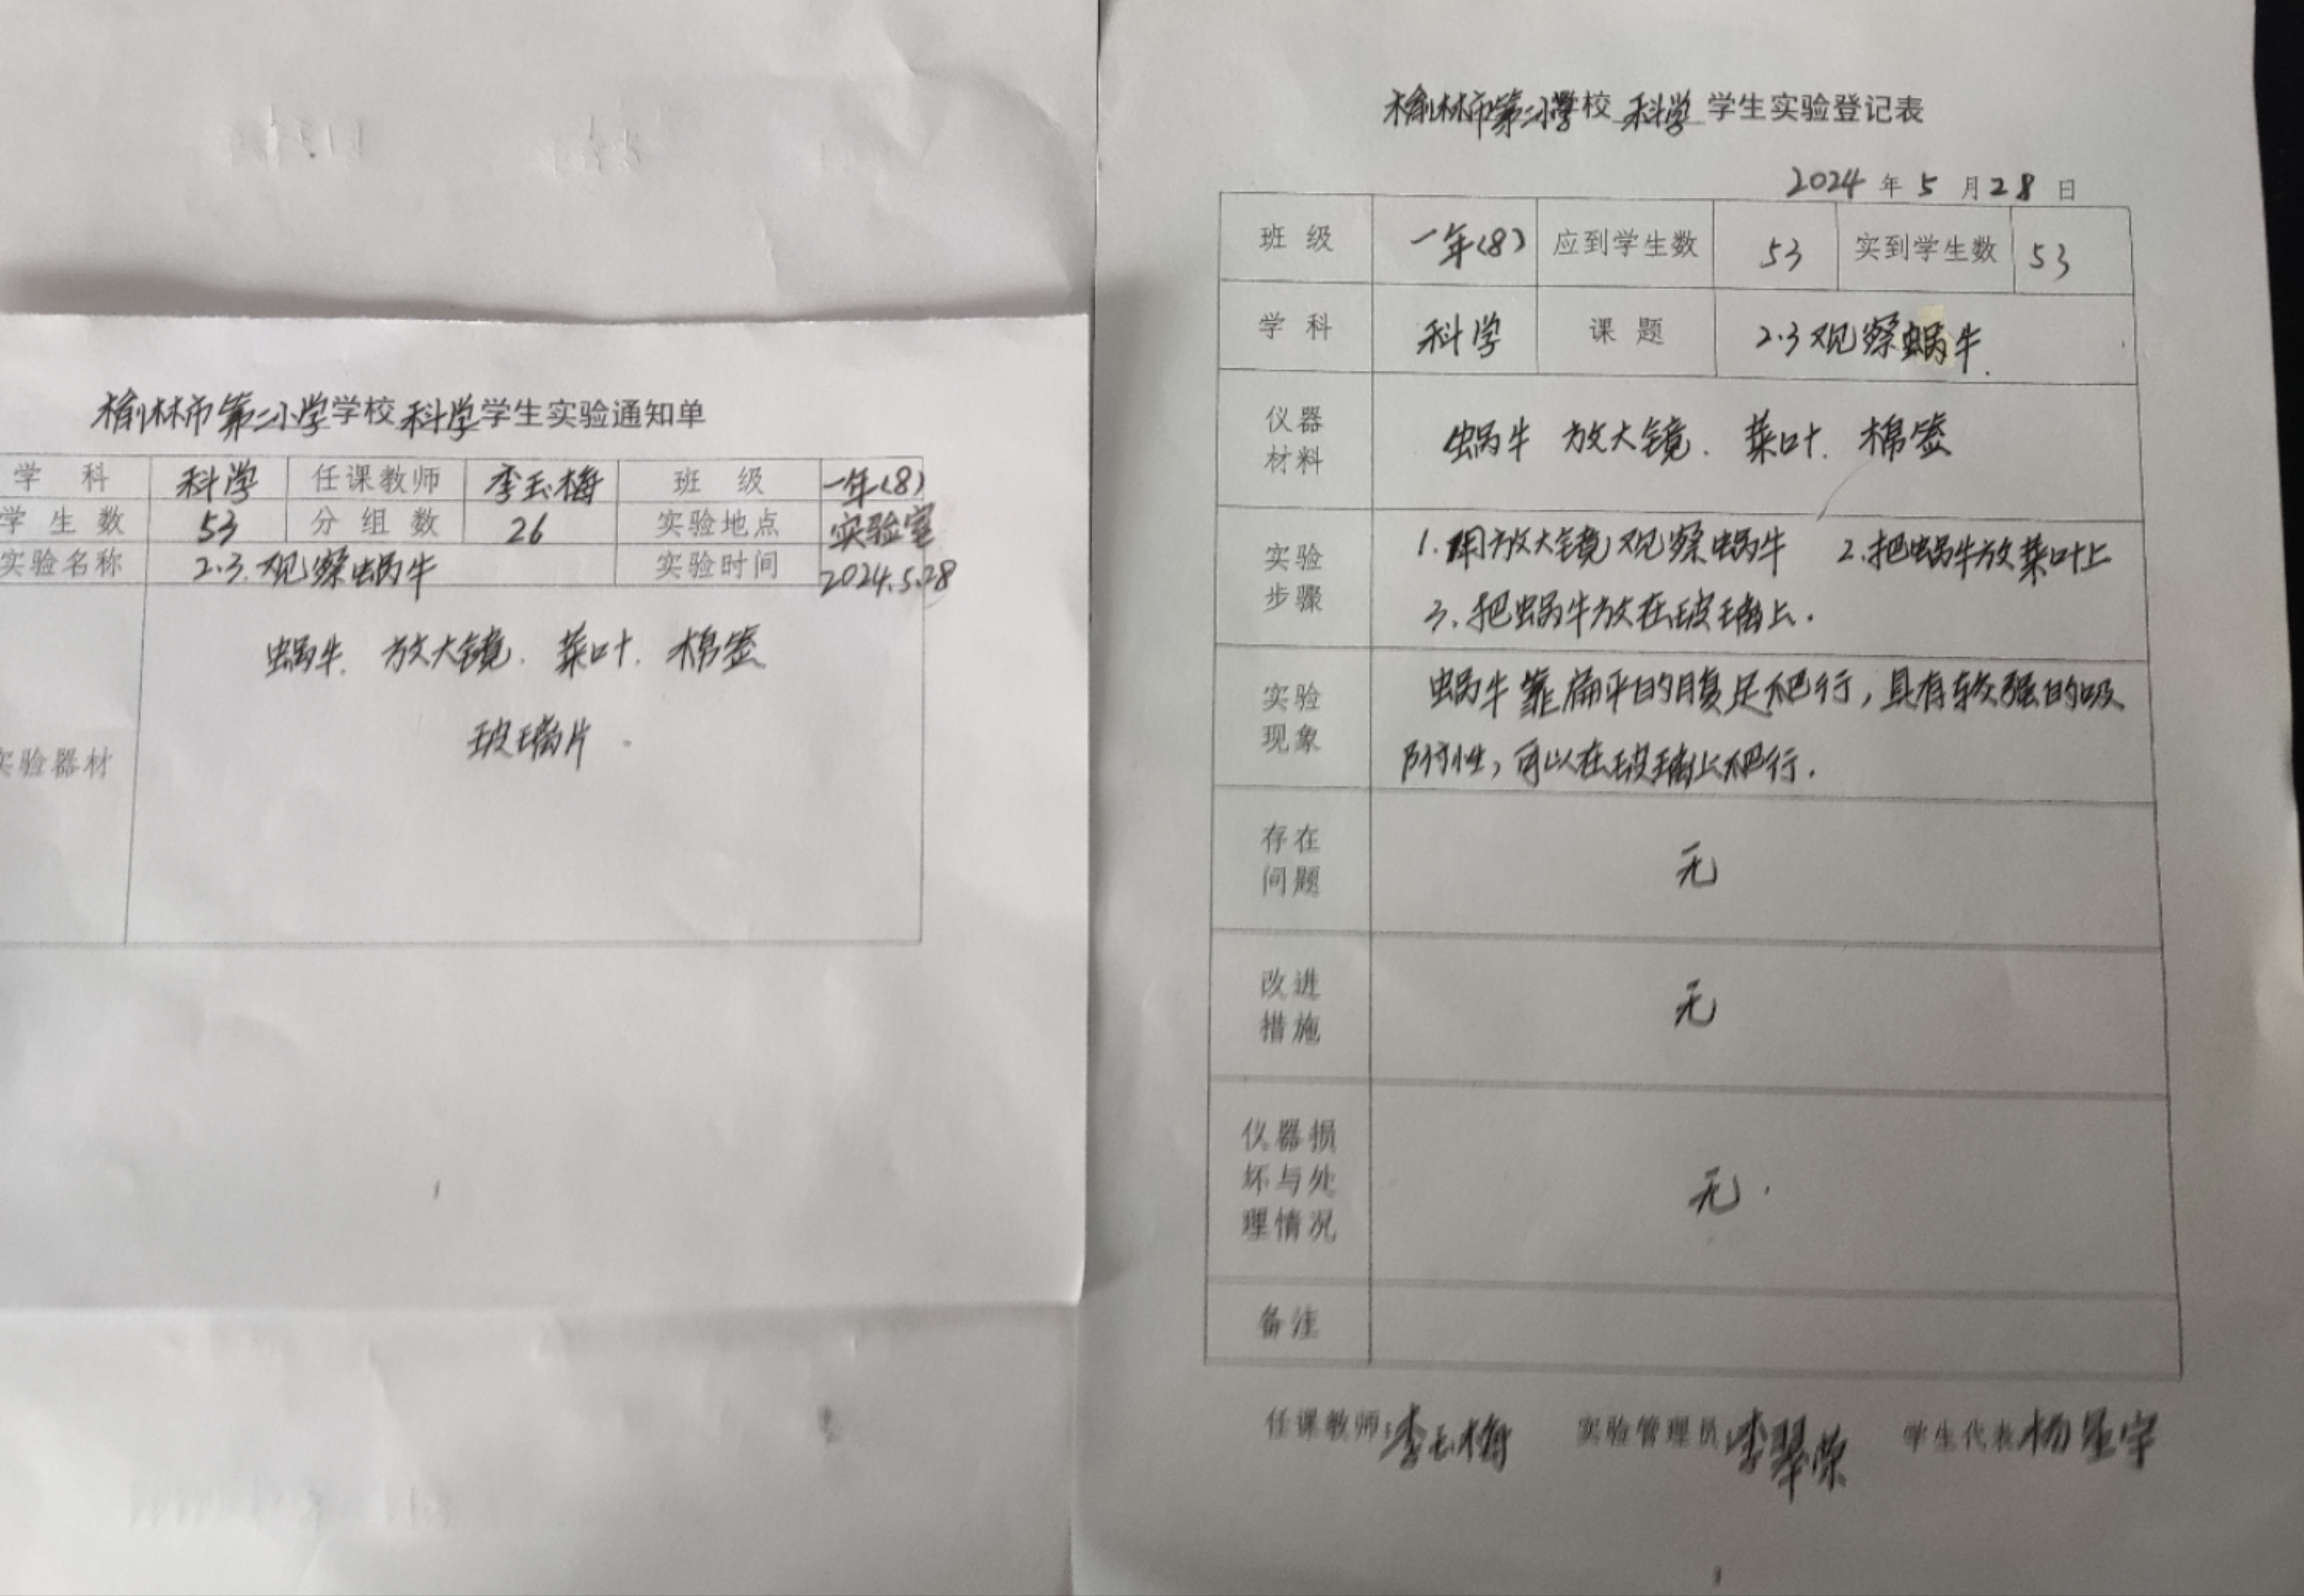 榆林市第二小学学校 科学 学生实验通知单
学 科 科学 任课教师 李玉梅 班 级 一年(8)
学 生 数 53 分 组 数 26 实验地点 实验室
实验名称 2.3.观察蜗牛 实验时间 2024.5.28
实验器材
蜗牛. 放大镜. 菜叶. 棉签
玻璃片.
榆林市第二小学校 科学 学生实验登记表
2024 年 5 月 28 日
班 级 一年(8) 应到学生数 53 实到学生数 53
学 科 科学 课 题 2.3观察蜗牛.
仪器
材料
蜗牛 放大镜. 菜叶. 棉签
实验
步骤
1.用放大镜观察蜗牛 2.把蜗牛放菜叶上
3.把蜗牛放在玻璃上.
实验
现象
蜗牛靠扁平的腹足爬行，具有较强的吸
附性，可以在玻璃上爬行.
存在
问题
无
改进
措施
无
仪器损
坏与处
理情况
无.
备注
任课教师:李玉梅 实验管理员 李翠荣 学生代表 杨星宇